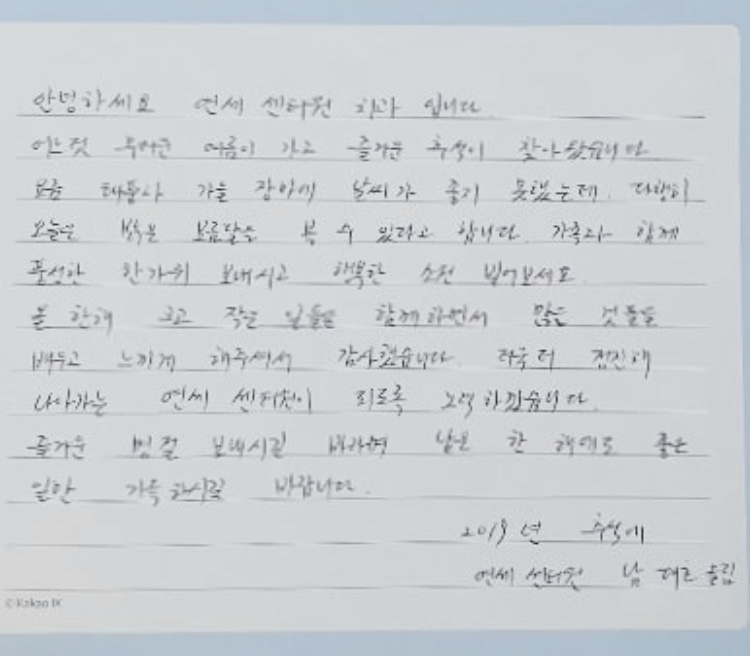 안녕하세요 연세 센터원 치과 입니다.
어느덧 무더운 여름이 가고 즐거운 추석이 찾아왔습니다
요즘 태풍과 가을 장마에 날씨가 좋지 못했는데, 다행히
오늘은 밝은 보름달을 볼 수 있다고 합니다. 가족과 함께
풍성한 한가위 보내시고 행복한 소원 빌어보세요.
올 한해 크고 작은 일들을 함께하면서 많은 것들을
배우고 느끼게 해주셔서 감사했습니다. 더욱 더 정진해
나아가는 연세 센터원이 되도록 노력하겠습니다.
즐거운 명절 보내시길 바라며 남은 한 해에도 좋은
일만 가득하시길 바랍니다.
2019년 추석에
연세 센터원 남 드림
© Kakao IX